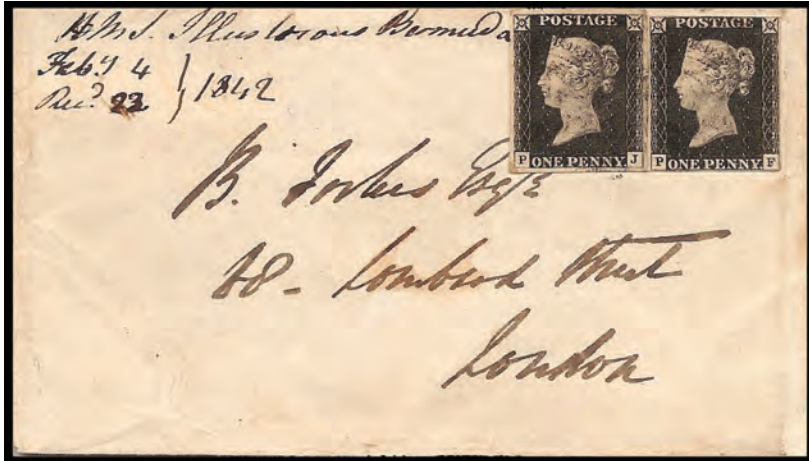 H.M.S. Illustorous Bermuda
Feby 4
Recd 22 } 1842
POSTAGE POSTAGE
P ONE PENNY. J P ONE PENNY. F
B. Forbes Esqre
68 - Lombard Street
London